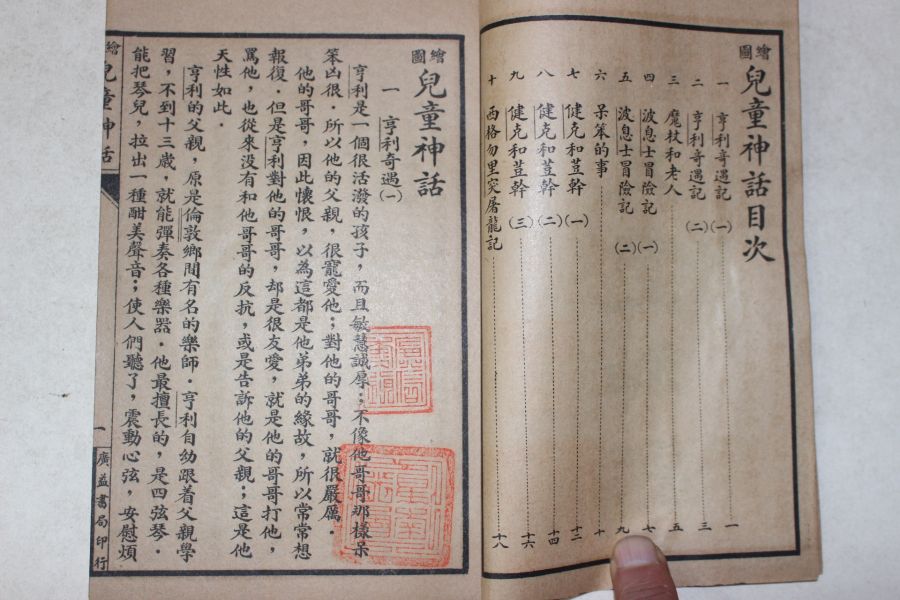 繪圖 兒童神話目次
一 亨利奇遇記 (一) 一
二 亨利奇遇記 (二) 三
三 魔杖和老人 五
四 波息士冒險記 (一) 七
五 波息士冒險記 (二) 九
六 呆笨的事 十
七 健克和荳幹 (一) 十二
八 健克和荳幹 (二) 十四
九 健克和荳幹 (三) 十六
十 西格勿里突屠龍記 十八
繪圖 兒童神話
一 亨利奇遇(一)
亨利是一個很活潑的孩子，而且敏慧誠厚；不像他哥哥那樣呆
笨凶很．所以他的父親，很寵愛他；對他的哥哥，就很嚴厲．
他的哥哥，因此懷恨，以為這都是他弟弟的緣故，所以常常想
報復．但是亨利對他的哥哥，却是很友愛，就是他的哥哥打他，
罵他，也從來沒有和他哥哥的反抗，或是告訴他的父親；這是他
天性如此．
亨利的父親，原是倫敦鄉間有名的樂師．亨利自幼跟着父親學
習，不到十三歲，就能彈奏各種樂器．他最擅長的，是四弦琴．
能把琴兒，拉出一種酣美聲音；使人們聽了，震動心弦，安慰煩
繪 兒童神話
一
廣益書局印行